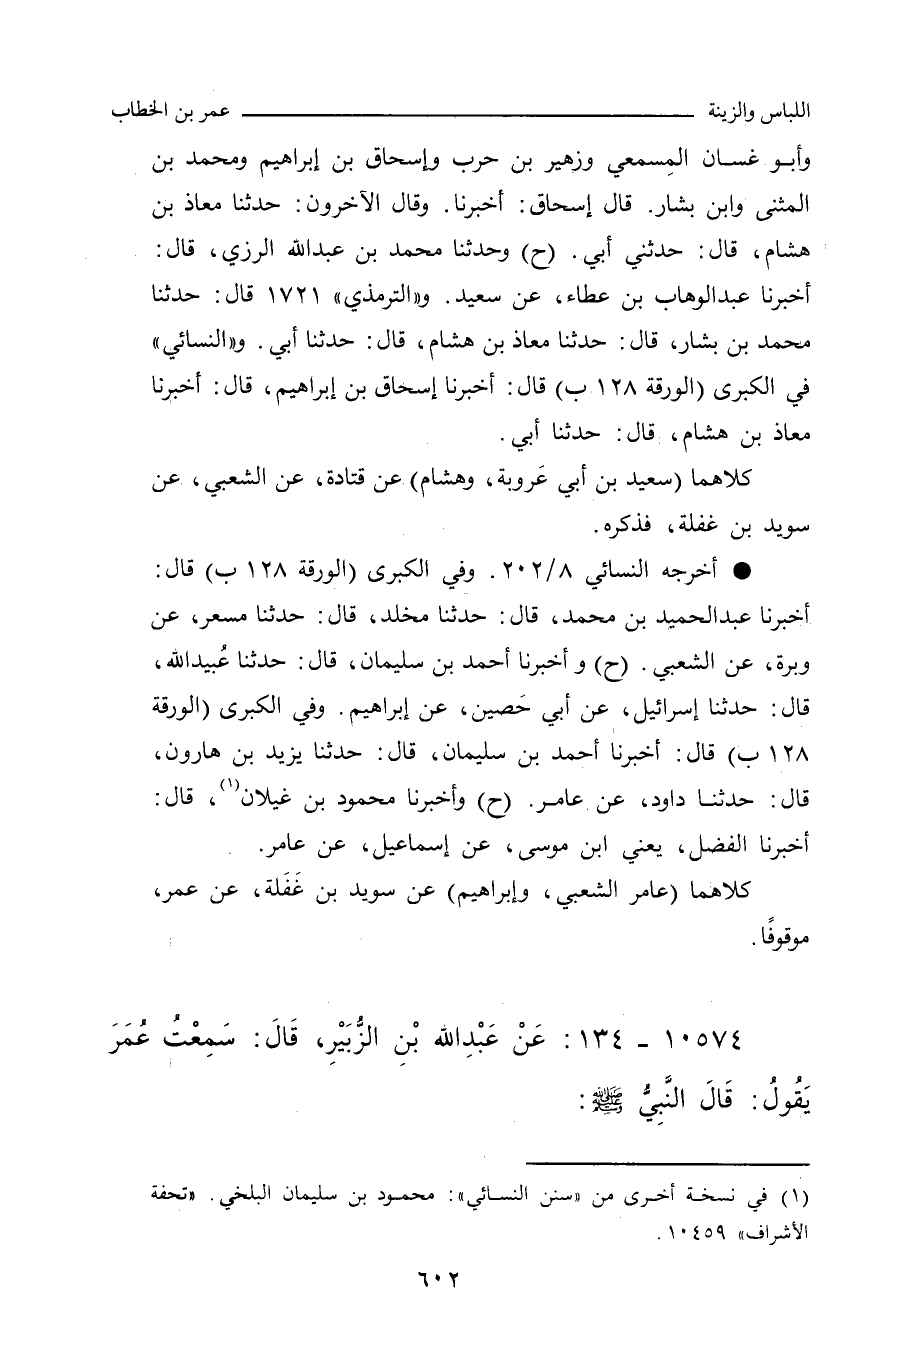 اللباس والزينة عمر بن الخطاب
وأبو غسان المِسمعي وزهير بن حرب وإسحاق بن إبراهيم ومحمد بن
المثنى وابن بشار. قال إسحاق: أخبرنا. وقال الآخرون: حدثنا معاذ بن
هشام، قال: حدثني أبي. (ح) وحدثنا محمد بن عبدالله الرزي، قال:
أخبرنا عبدالوهاب بن عطاء، عن سعيد. و«الترمذي» ١٧٢١ قال: حدثنا
محمد بن بشار، قال: حدثنا معاذ بن هشام، قال: حدثنا أبي. و«النسائي»
في الكبرى (الورقة ١٢٨ ب) قال: أخبرنا إسحاق بن إبراهيم، قال: أخبرنا
معاذ بن هشام، قال: حدثنا أبي.
كلاهما (سعيد بن أبي عَروبة، وهشام) عن قتادة، عن الشعبي، عن
سويد بن غفلة، فذكره.
● أخرجه النسائي ٢٠٢/٨. وفي الكبرى (الورقة ١٢٨ ب) قال:
أخبرنا عبدالحميد بن محمد، قال: حدثنا مخلد، قال: حدثنا مسعر، عن
وبرة، عن الشعبي. (ح) و أخبرنا أحمد بن سليمان، قال: حدثنا عُبيدالله،
قال: حدثنا إسرائيل، عن أبي حَصين، عن إبراهيم. وفي الكبرى (الورقة
١٢٨ ب) قال: أخبرنا أحمد بن سليمان، قال: حدثنا يزيد بن هارون،
قال: حدثنا داود، عن عامر. (ح) وأخبرنا محمود بن غيلان(١)، قال:
أخبرنا الفضل، يعني ابن موسى، عن إسماعيل، عن عامر.
كلاهما (عامر الشعبي، وإبراهيم) عن سويد بن غَفَلة، عن عمر،
موقوفًا.
١٠٥٧٤ - ١٣٤: عَنْ عَبْدِالله بْنِ الزُّبَيْرِ، قَالَ: سَمِعْتُ عُمَرَ
يَقُولُ: قَالَ النَّبِيُّ ﷺ:
(١) في نسخة أخرى من «سنن النسائي»: محمود بن سليمان البلخي. «تحفة
الأشراف» ١٠٤٥٩.
٦٠٢